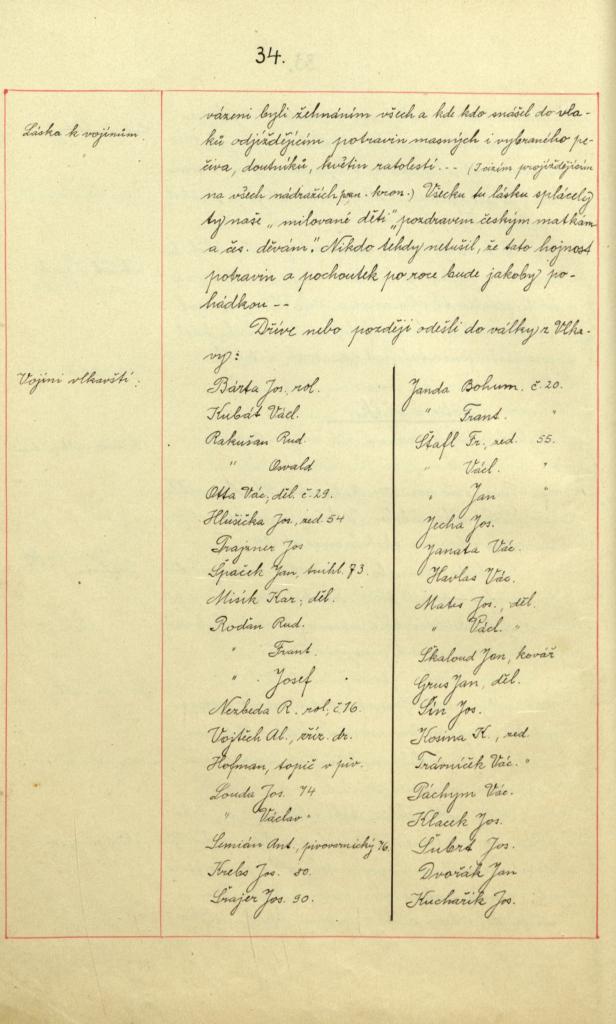 34.
Láska k vojínům.
vázeni byli žehnáním všech a kde kdo snášel do vla-
ků odjíždějícím potravin masných i vybraného pe-
čiva, doutníků, květin ratolestí. -- (I cizím projíždějícím
na všech nádražích pozn. kron.) Všecku tu lásku splácely
ty naše „milované děti" „pozdravem českým matkám
a čes. děvám". Nikdo tehdy netušil, že tato hojnost
potravin a pochoutek po roce bude jakoby po-
hádkou --
Dříve nebo později odešli do války z Vlka-
vy:
Vojíni vlkavští:
Bárta Jos. rol.
Kubát Václ.
Rakušan Rud.
" Osvald
Otta Vác, děl. č 29.
Hlušička Jos., zed. 54
Trajzner Jos
Špaček Jan, truhl. 73.
Mišík Kar., děl.
Roďan Rud.
" Frant.
" Josef
Nezbeda R. rol, č 16.
Vojtěch Al., zříz. dr.
Hofman, topič v piv.
Louda Jos. 74
" Václav "
Semián Ant., pivovarnický 76.
Krebs Jos. 80.
Šrajer Jos. 90.
Janda Bohum. č. 20.
" Frant. "
Štafl Fr., zed. 55.
" Václ. "
" Jan "
Jecha Jos.
Janata Vác.
Havlas Vác.
Mates Jos., děl.
" Václ. "
Škaloud Jan, kovář
Grus Jan, děl.
Šín Jos.
Kosina K., zed.
Trávníček Vác. "
Páchym Vác.
Klacek Jos.
Šubrt Jos.
Dvořák Jan
Kuchařík Jos.